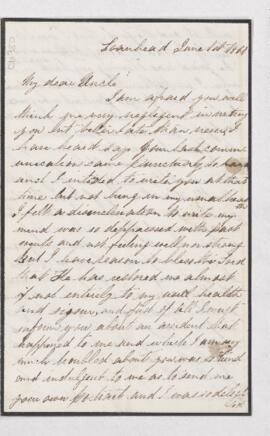 Loanhead June 1st 1861
My dear Uncle
I am afraid you will
think me very neglegent in writing
you but better late than never I
have heard say. Your last comm-
unication came
and I intended to write you at that
time but not being in my usual health
I felt a disinclination to write my
mind was so deppressed with past
events and not feeling well nor strong
But I have reason to bless the Lord
that He has restored me almost
if not entirely to my usual health
and vigour, and first of all I must
inform you about an accident that
happened to me and which I am very
much troubled about you was so kind
and indulgent to me as to send me
your own portrait and I was so delight